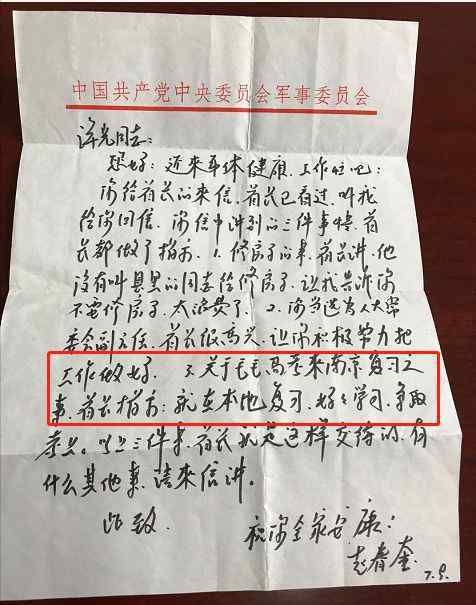 中国共产党中央委员会军事委员会
泽光同志:
您好:近来身体健康、工作忙吧:
您给首长的来信,首长已看过,叫我
给您回信。您信中讲到的三件事情,首
长都做了指示。1.修房子的事,首长讲,他
没有叫县里的同志给修房子,让我告诉您
不要修房子,太浪费了。2.您当选为人大常
委会副主任,首长很高兴,让您积极努力把
工作做好。3.关于毛毛高考来南京复习之
事,首长指示:就在本地复习,好好学习,争取
考上。以上三件事,首长就是这样交待的,有
什么其他事,请来信讲。
此致
祝您全家安康:
赵春奎
7.9.